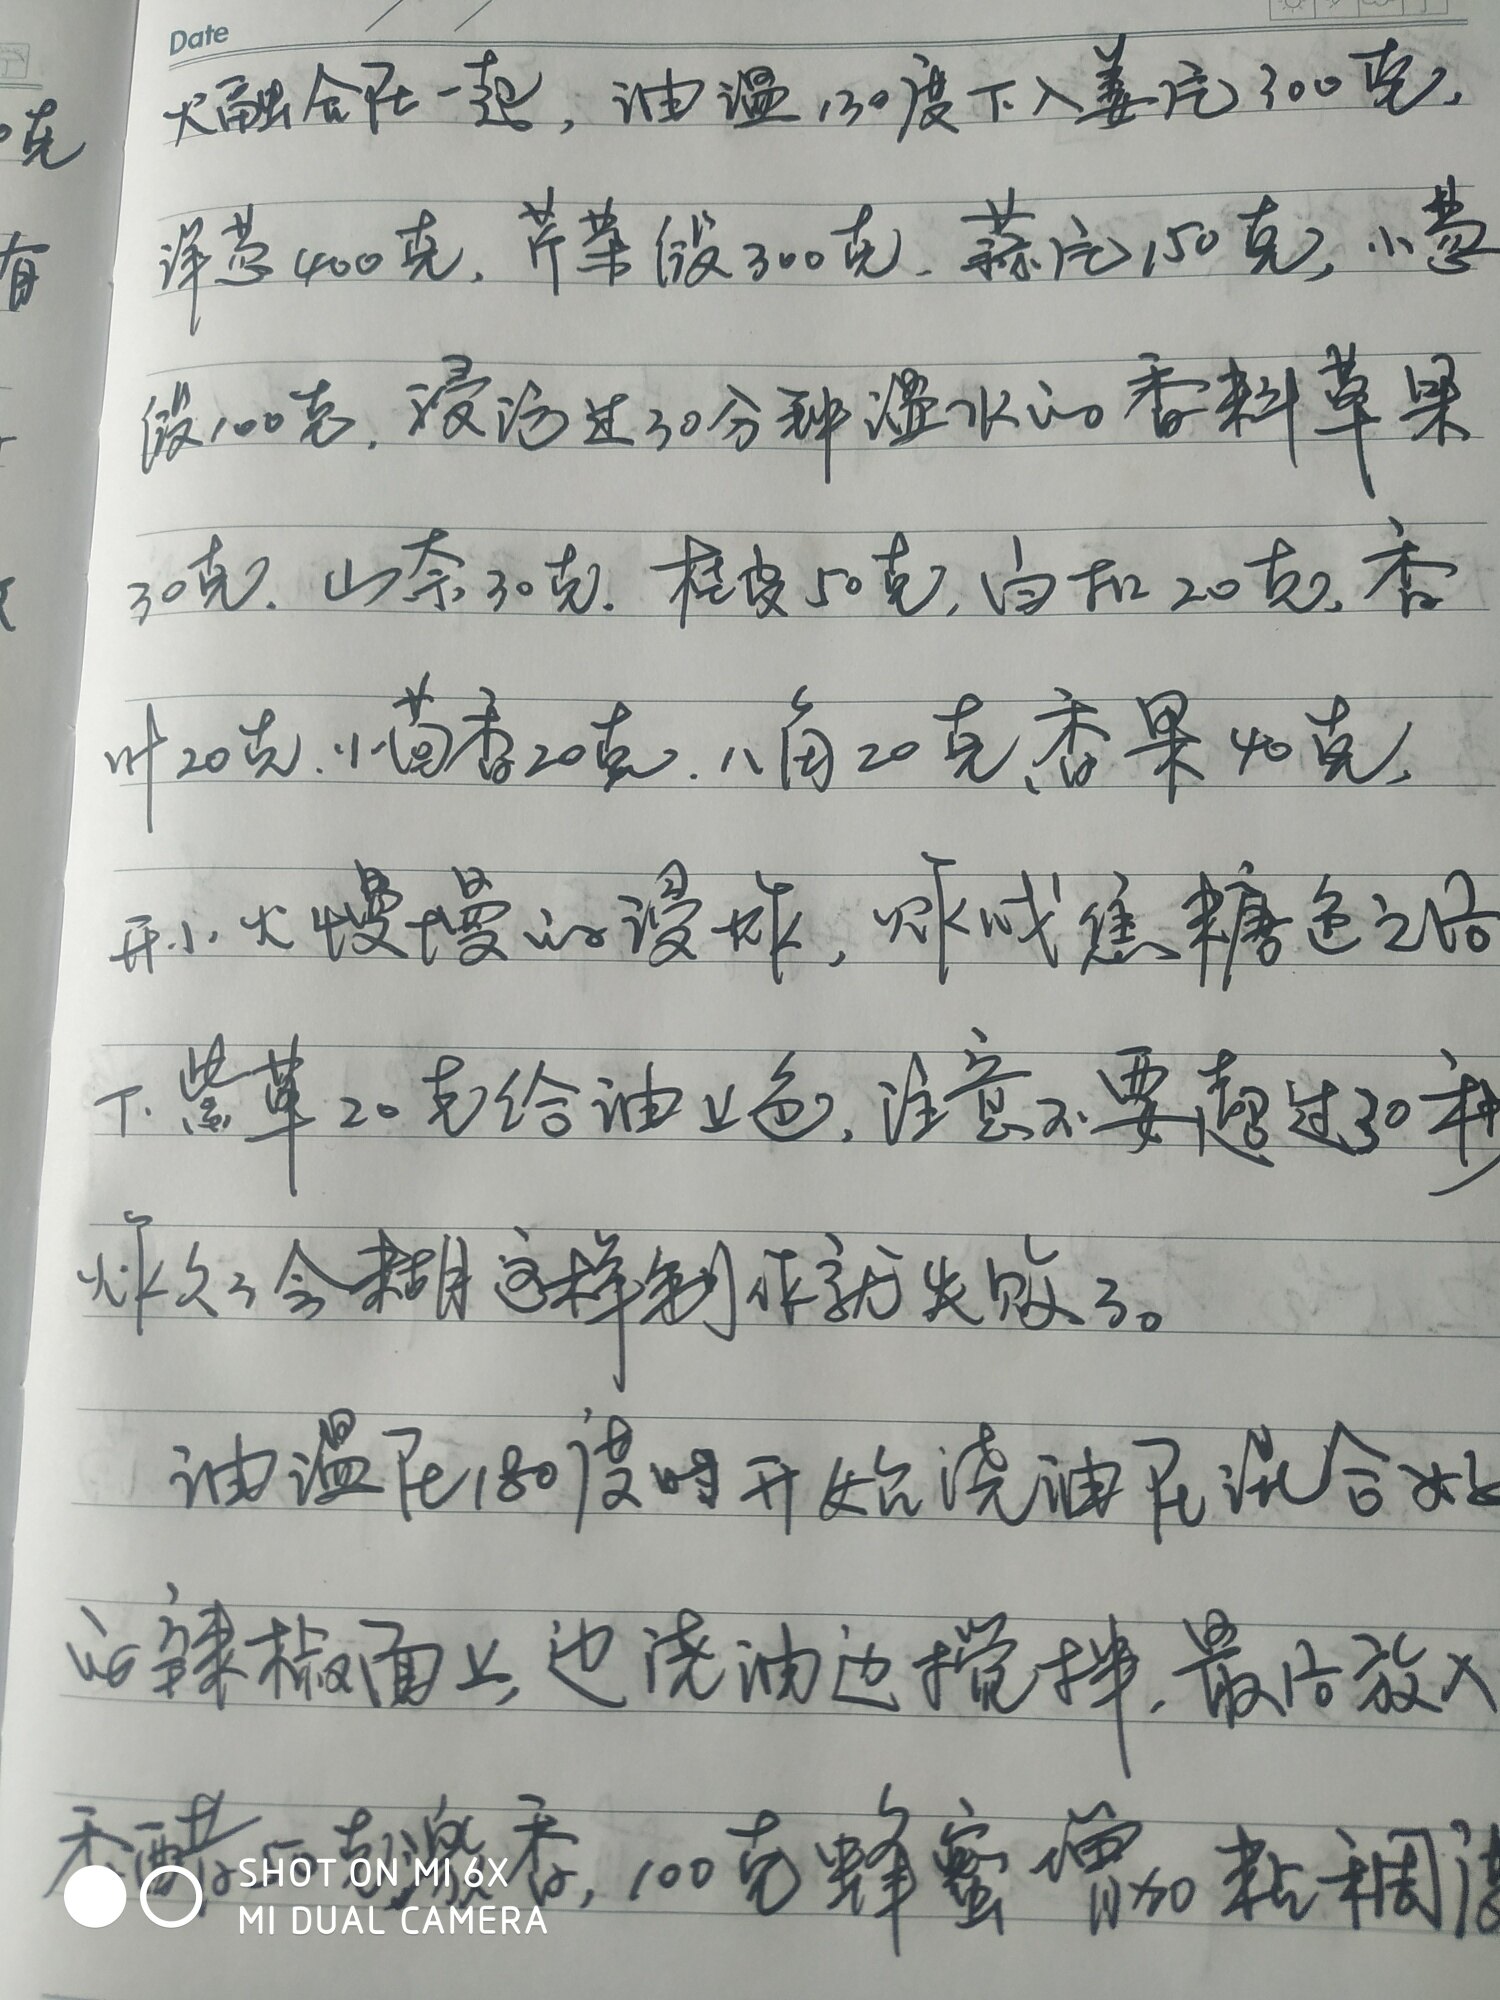 Date
火融合在一起，油温130度下入姜片300克，
洋葱400克，芹菜段300克，蒜片150克，小葱
段100克，浸泡过30分钟温水的香料草果
30克，山奈30克，桂皮50克，白扣20克，香
叶20克，小茴香20克，八角20克，香果40克，
开小火慢慢的浸炸，炸成焦糖色之后
下紫草20克给油上色，注意不要超过30秒
炸久了会糊这样制作就失败了。
油温在180度时开始浇油在混合好
的辣椒面上，边浇油边搅拌，最后放入
香醋50克激香，100克蜂蜜增加粘稠度
克
有
SHOT ON MI 6X
MI DUAL CAMERA